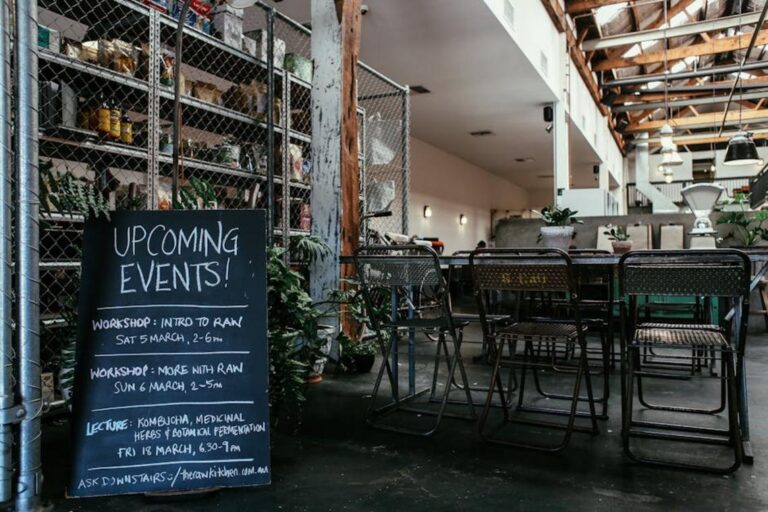 UPCOMING
EVENTS!
WORKSHOP: INTRO TO RAW
SAT 5 MARCH, 2-6pm
WORKSHOP: MORE WITH RAW
SUN 6 MARCH, 2-5pm
LECTURE: KOMBUCHA, MEDICINAL
HERBS & BOTANICAL FERMENTATION
FRI 18 MARCH, 6.30-9pm
ASK DOWNSTAIRS :/therawkitchen.com.au